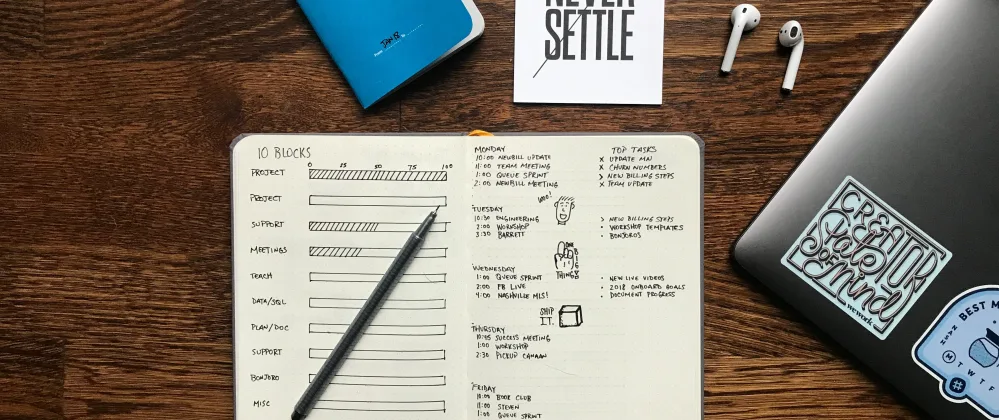 JAN 18
NEVER
SETTLE
10 BLOCKS
0 25 50 75 100
PROJECT
PROJECT
SUPPORT
MEETINGS
TEACH
DATA/SQL
PLAN/DOC
SUPPORT
BONJORO
MISC
MONDAY
10:00 NEWBILL UPDATE
11:00 TEAM MEETING
1:00 QUEUE SPRINT
2:00 NEWBILL MEETING
TOP TASKS
X UPDATE MN
X CHURN NUMBERS
> NEW BILLING STEPS
X TEAM UPDATE
WOO!
TUESDAY
10:30 ENGINEERING
2:00 WORKSHOP
3:30 BARRETT
> NEW BILLING STEPS
• WORKSHOP TEMPLATES
• BONJOROS
ONE
BIG
THING
WEDNESDAY
1:00 QUEUE SPRINT
2:00 FB LIVE
4:00 NASHVILLE MLS!
• NEW LIVE VIDEOS
• 2018 ONBOARD GOALS
• DOCUMENT PROGRESS
SHIP
IT.
THURSDAY
10:45 SUCCESS MEETING
1:00 WORKSHOP
2:30 PICKUP CANAAN
FRIDAY
10:00 BOOK CLUB
11:00 STEVEN
1:00 QUEUE SPRINT
CREATOR
State
OF
Mind
wework
BEST M
M T W T F
#